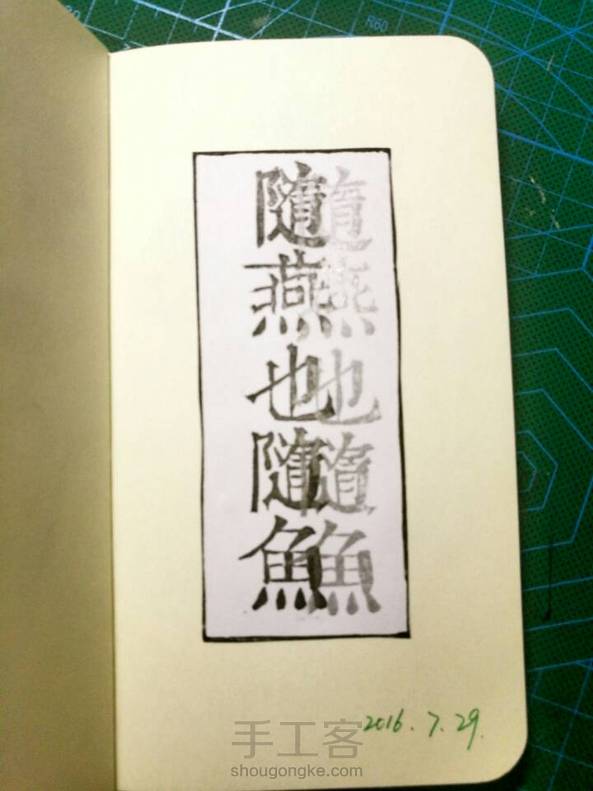 隨燕也隨魚
隨燕也隨魚
2016.7.29.
手工客
shougongke.com